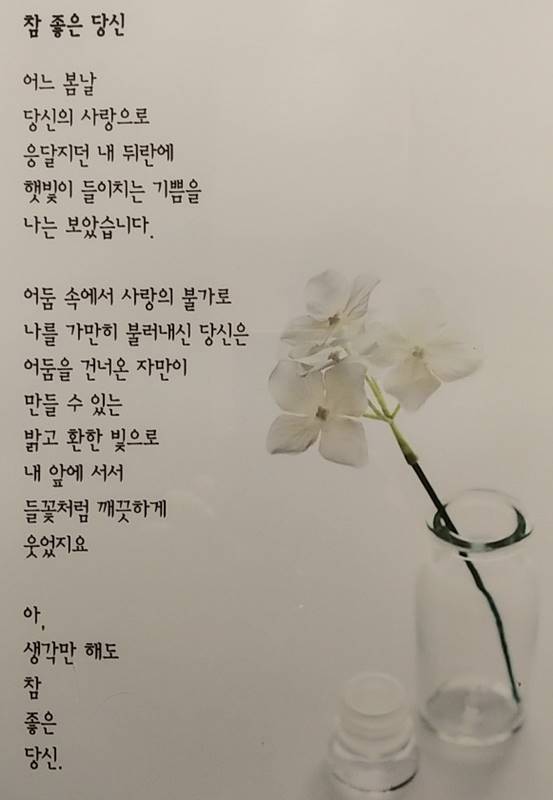 참 좋은 당신
어느 봄날
당신의 사랑으로
응달지던 내 뒤란에
햇빛이 들이치는 기쁨을
나는 보았습니다.
어둠 속에서 사랑의 불가로
나를 가만히 불러내신 당신은
어둠을 건너온 자만이
만들 수 있는
밝고 환한 빛으로
내 앞에 서서
들꽃처럼 깨끗하게
웃었지요
아,
생각만 해도
참
좋은
당신.